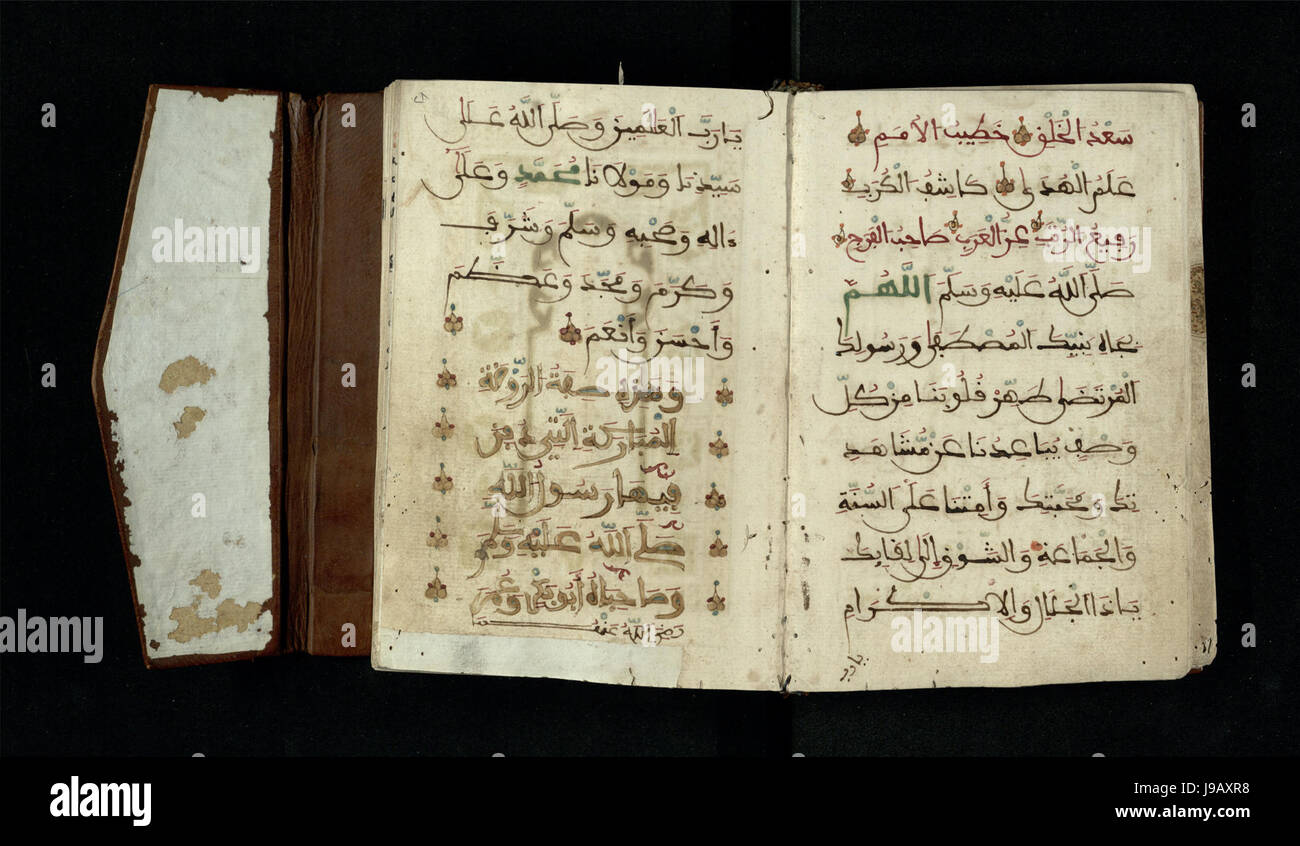 سَعْدُ الْخَلْقِ خَطِيبُ الْأُمَمِ
عَلَمُ الْهُدَى كَاشِفُ الْكُرَبِ
رَفِيعُ الرُّتَبِ عِزُّ الْعَرَبِ صَاحِبُ الْفَرَجِ
صَلَّى اللَّهُ عَلَيْهِ وَسَلَّمَ اللَّهُمَّ
بجاه نَبِيِّكَ الْمُصْطَفَى وَرَسُولِكَ
الْمُرْتَضَى طَهِّرْ قُلُوبَنَا مِنْ كُلِّ
وَصْفٍ يُبَاعِدُنَا عَنْ مُشَاهَدَ
تِكَ وَمَحَبَّتِكَ وَأَمِتْنَا عَلَى السُّنَّةِ
وَالْجَمَاعَةِ وَالشَّوْقِ إِلَى لِقَائِكَ
يَا ذَا الْجَلَالِ وَالْإِكْرَامِ
يَا رَبَّ الْعَالَمِينَ وَصَلَّى اللَّهُ عَلَى
سَيِّدِنَا وَمَوْلَانَا مُحَمَّدٍ وَعَلَى
ءَالِهِ وَصَحْبِهِ وَسَلَّمَ وَشَرَّفَ
وَكَرَّمَ وَمَجَّدَ وَعَظَّمَ
وَأَحْسَنَ وَأَنْعَمَ
وَهَذِهِ صِفَةُ الرَّوْضَةِ
الْمُبَارَكَةِ الَّتِي دُفِنَ
فِيهَا رَسُولُ اللَّهِ
صَلَّى اللَّهُ عَلَيْهِ وَسَلَّمَ
وَصَاحِبَاهُ أَبُو بَكْرٍ وَعُمَرُ
رضي الله عنه
alamy
Image ID: J9AXR8
www.alamy.com